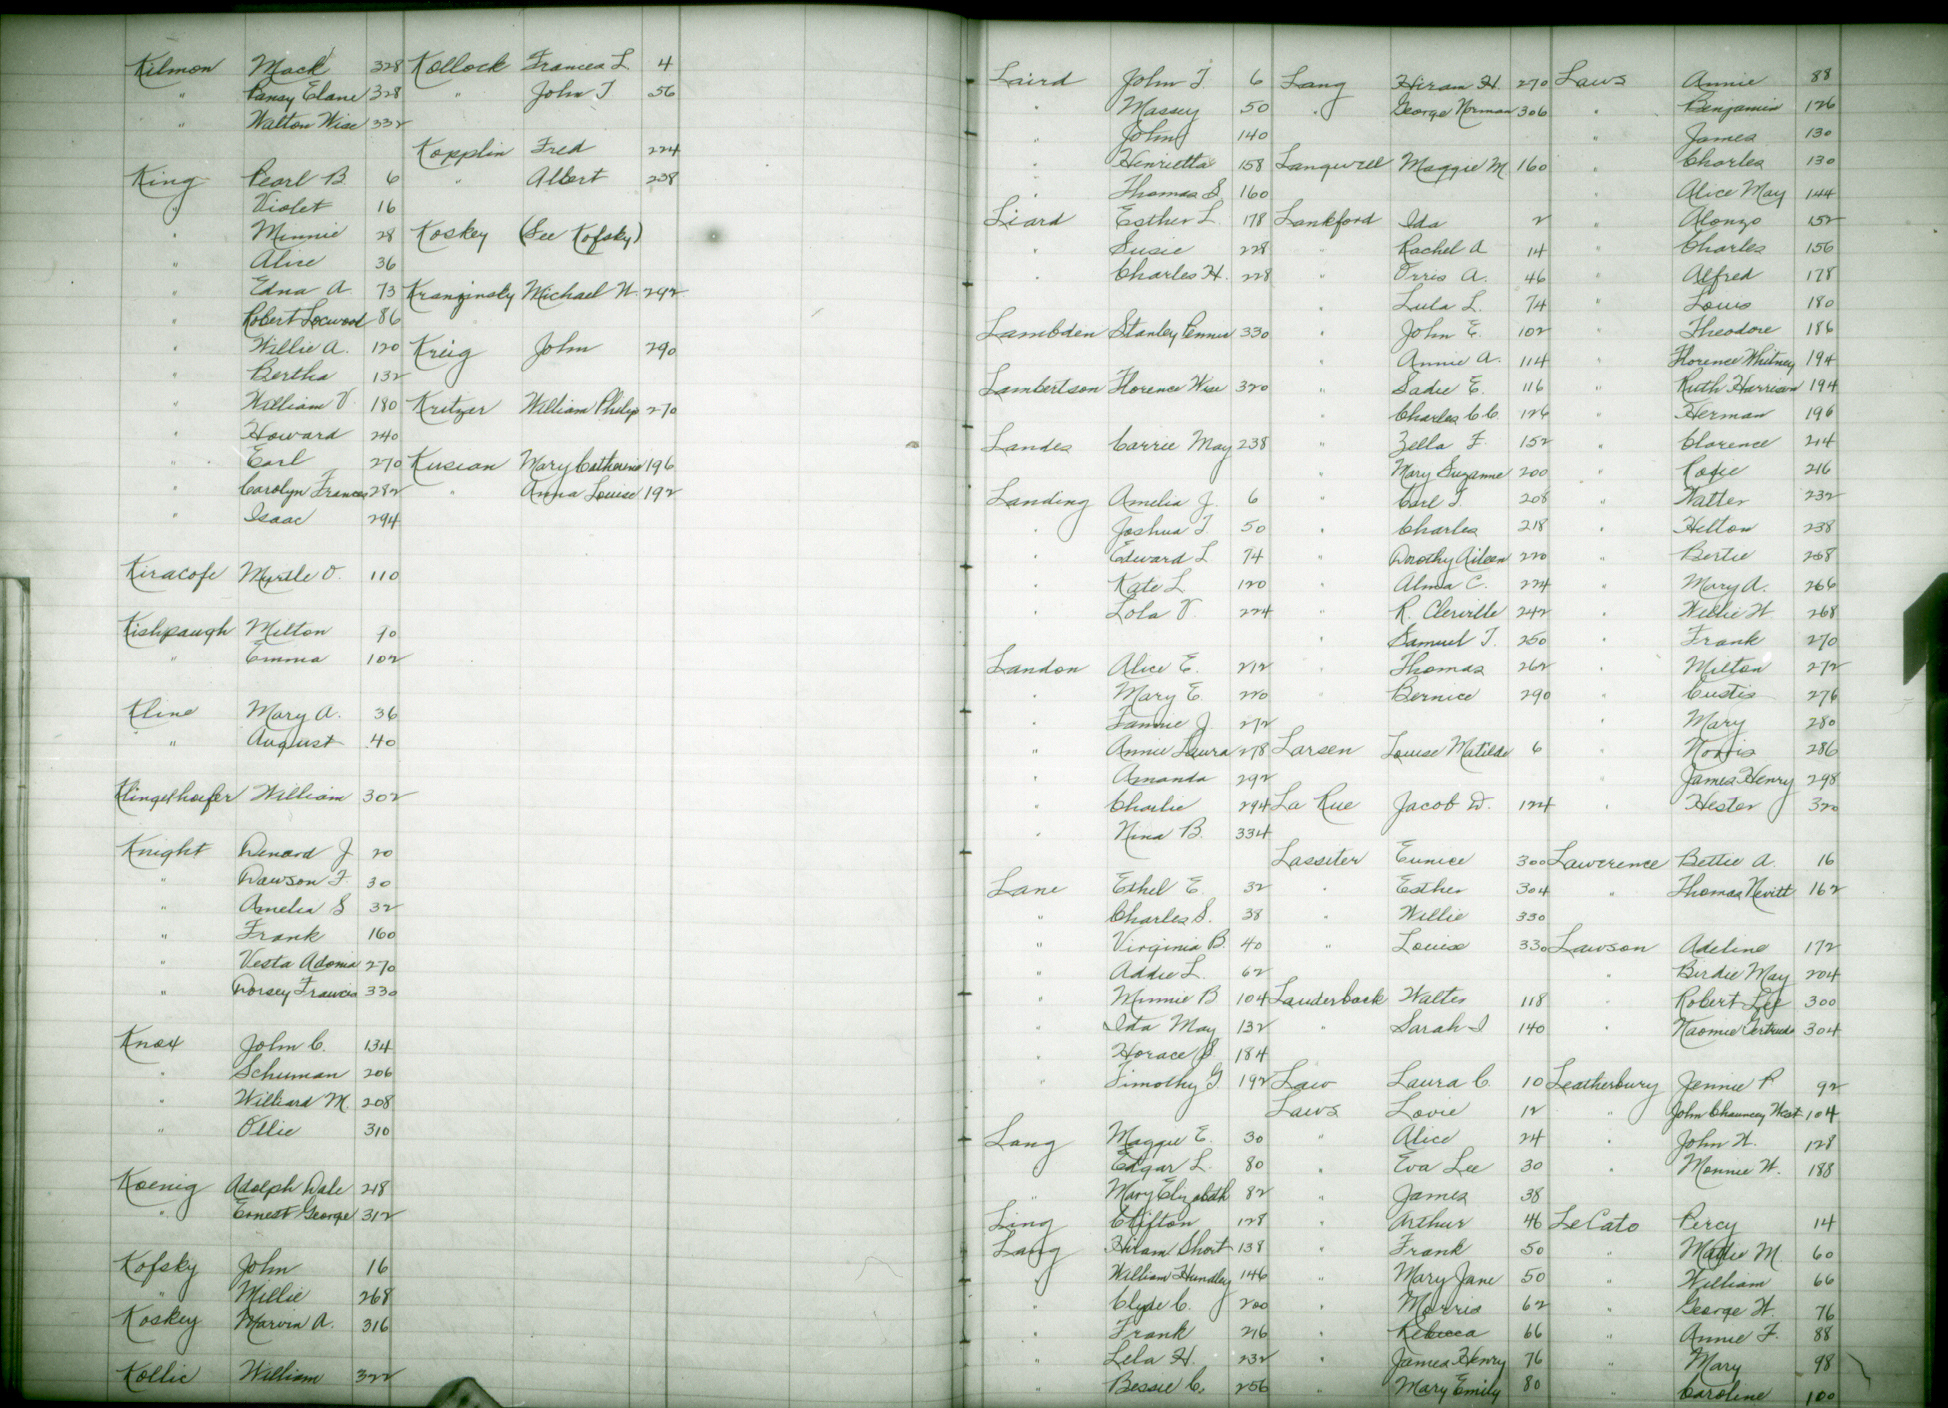 Kilmon Mack 328
" Pansy Elane 328
" Walton Wise 332
King Pearl B. 6
" Violet 16
" Minnie 28
" Alice 36
" Edna A. 73
" Robert Locwood 86
" Willie A. 120
" Bertha 132
" William V. 180
" Howard 240
" Earl 270
" Carolyn Frances 282
" Isaac 294
Kiracofe Myrtle O. 110
Kishpaugh Milton 90
" Emma 102
Kline Mary A. 36
" August 40
Klingelhoefer William 302
Knight Denard J. 20
" Dawson F. 30
" Amelia S 32
" Frank 160
" Vesta Adonia 270
" Dorsey Francis 330
Knox John C. 134
" Schuman 206
" Williard M. 208
" Ollie 310
Koenig Adolph Dale 218
" Ernest George 312
Kofsky John 16
" Millie 268
Koskey Marvin A. 316
Kollie William 322
Kollock Frances L. 4
" John T 56
Kopplin Fred 224
" Albert 238
Koskey (See Kofsky)
Kranzinsky Michael N. 292
Kreig John 290
Kritzer William Philip 270
Kusian Mary Catherine 196
" Anna Louise 192
Laird John T. 6
" Massey 50
" John 140
" Henrietta 158
" Thomas S. 160
Liard Esther L. 178
" Susie 228
" Charles H. 228
Lambden Stanley Pennie 330
Lambertson Florence Wise 320
Landes Carrie May 238
Landing Amelia J. 6
" Joshua T 50
" Edward L 74
" Kate L 120
" Lola V. 224
Landon Alice E. 212
" Mary E. 220
" Fannie J. 272
" Annie Laura 278
" Amanda 292
" Charlie 294
" Nina B. 334
Lane Ethel E. 32
" Charles S. 38
" Virginia B. 40
" Addie L. 62
" Minnie B 104
" Ida May 132
" Horace S. 184
" Timothy G. 192
Lang Maggie E. 30
" Edgar L. 80
" Mary Elizabeth 82
Ling Clifton 128
Lang Hiram Short 138
" William Hundley 146
" Clyde C. 200
" Frank 216
" Lela H. 232
" Bessie C. 256
Lang Hiram H. 270
" George Norman 306
Langwell Maggie M 160
Lankford Ida 2
" Rachel A 14
" Orris A. 46
" Lula L. 74
" John E. 102
" Annie A. 114
" Sadie E. 116
" Charles C.C. 126
" Zella F. 152
" Mary Suzanne 200
" Carl T. 208
" Charles 218
" Dorothy Aileen 220
" Alma C. 224
" R. Clerville 242
" Samuel T. 250
" Thomas 262
" Bernice 290
Larsen Louise Matilda 6
La Rue Jacob D. 124
Lassiter Eunice 300
" Esther 304
" Willie 330
" Louise 330
Lauderback Walter 118
" Sarah I 140
Law Laura C. 10
Laws Lovie 12
" Alice 24
" Eva Lee 30
" James 38
" Arthur 46
" Frank 50
" Mary Jane 50
" Morris 62
" Rebecca 66
" James Henry 76
" Mary Emily 80
Laws Annie 88
" Benjamin 126
" James 130
" Charles 130
" Alice May 144
" Alonzo 152
" Charles 156
" Alfred 178
" Louis 180
" Theodore 186
" Florence Whitney 194
" Ruth Harrison 194
" Herman 196
" Clarence 214
" Rosie 216
" Walter 232
" Hilton 238
" Bertie 268
" Mary A. 266
" Willie H 268
" Frank 270
" Milton 272
" Custis 276
" Mary 280
" Norris 286
" James Henry 298
" Hester 320
Lawerence Bettie A. 16
" Thomas Nevitt 162
Lawson Adeline 172
" Birdie May 204
" Robert Lee 300
" Naomie Gertrude 304
Leatherbury Jennie P 92
" John Chauncey West 104
" John H. 128
" Monnie H. 188
LeCato Percy 14
" Mattie M. 60
" William 66
" George H. 76
" Annie F. 88
" Mary 98
" Caroline 100